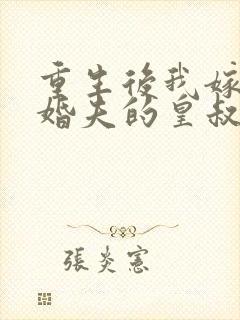 重生後我嫁
婚夫的皇叔
張炎憲